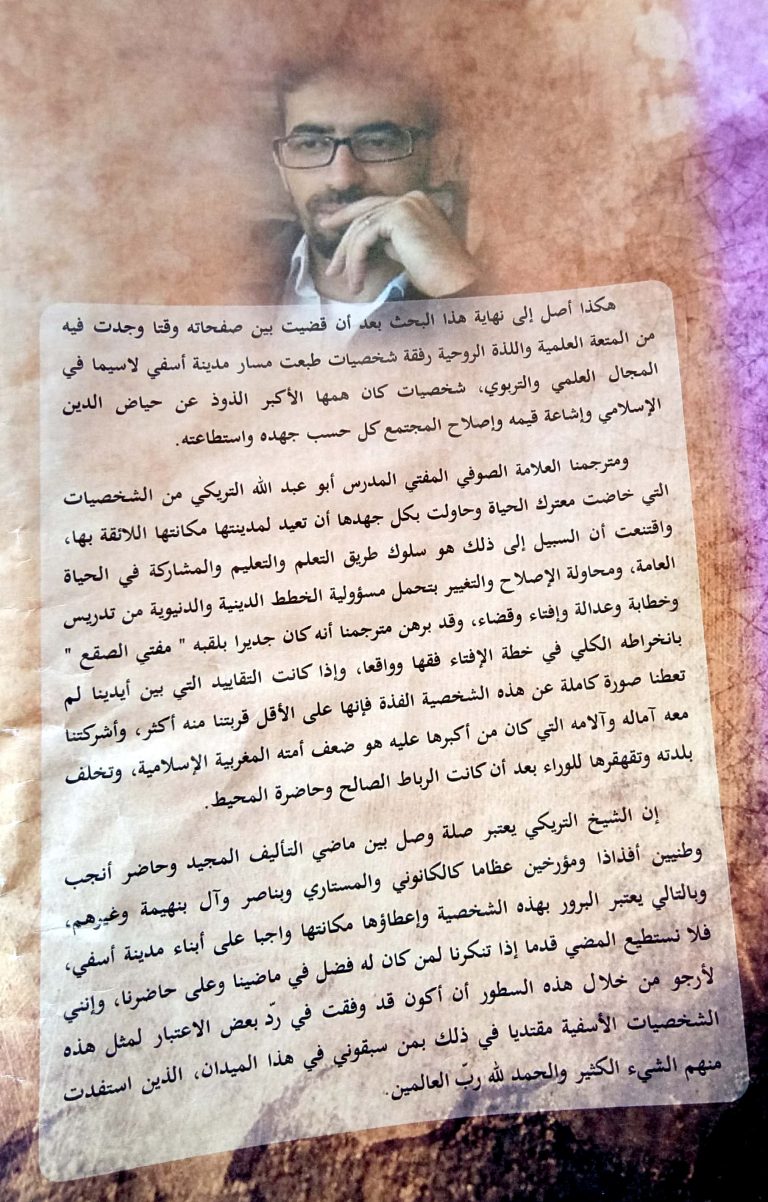 هكذا أصل إلى نهاية هذا البحث بعد أن قضيت بين صفحاته وقتا وجدت فيه
من المتعة العلمية واللذة الروحية رفقة شخصيات طبعت مسار مدينة أسفي لاسيما في
المجال العلمي والتربوي، شخصيات كان همها الأكبر الذوذ عن حياض الدين
الإسلامي وإشاعة قيمه وإصلاح المجتمع كل حسب جهده واستطاعته.
ومترجمنا العلامة الصوفي المفتي المدرس أبو عبد الله التريكي من الشخصيات
التي خاضت معترك الحياة وحاولت بكل جهدها أن تعيد لمدينتها مكانتها اللائقة بها،
واقتنعت أن السبيل إلى ذلك هو سلوك طريق التعلم والتعليم والمشاركة في الحياة
العامة، ومحاولة الإصلاح والتغيير بتحمل مسؤولية الخطط الدينية والدنيوية من تدريس
وخطابة وعدالة وإفتاء وقضاء، وقد برهن مترجمنا أنه كان جديرا بلقبه " مفتي الصقع "
بانخراطه الكلي في خطة الإفتاء فقها وواقعا، وإذا كانت التقاييد التي بين أيدينا لم
تعطنا صورة كاملة عن هذه الشخصية الفذة فإنها على الأقل قربتنا منه أكثر، وأشركتنا
معه آماله وآلامه التي كان من أكبرها عليه هو ضعف أمته المغربية الإسلامية، وتخلف
بلدته وتقهقرها للوراء بعد أن كانت الرباط الصالح وحاضرة المحيط.
إن الشيخ التريكي يعتبر صلة وصل بين ماضي التأليف المجيد وحاضر أنجب
وطنيين أفذاذا ومؤرخين عظاما كالكانوني والمستاري وبناصر وآل بنهيمة وغيرهم،
وبالتالي يعتبر البرور بهذه الشخصية وإعطاؤها مكانتها واجبا على أبناء مدينة أسفي،
فلا نستطيع المضي قدما إذا تنكرنا لمن كان له فضل في ماضينا وعلى حاضرنا، وإنني
لأرجو من خلال هذه السطور أن أكون قد وفقت في ردّ بعض الاعتبار لمثل هذه
الشخصيات الأسفية مقتديا في ذلك بمن سبقوني في هذا الميدان، الذين استفدت
منهم الشيء الكثير والحمد لله ربّ العالمين.